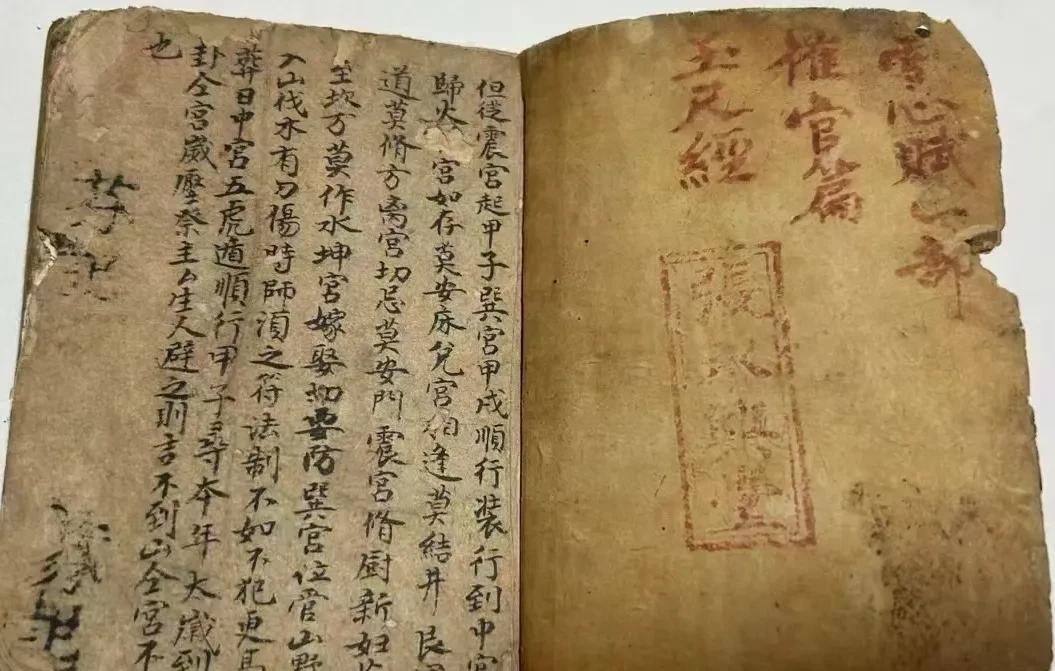 雪心賦一部
催官篇
玉尺經
但從震宮起甲子巽宮甲戌順行装行到中宮
歸火宮如存莫安床兌宮相逢莫結井艮
道莫脩方离宮切忌莫安門震宮脩厨新妇
坐坎方莫作水坤宮嫁娶切要防巽宮位管山野
入山伐木有刀傷時師須之符法制不如不犯更
葬日中宮五虎遁順行甲子尋本年太歲到
卦仝宮歲壓祭主生人避之則吉不到山仝宮不
也